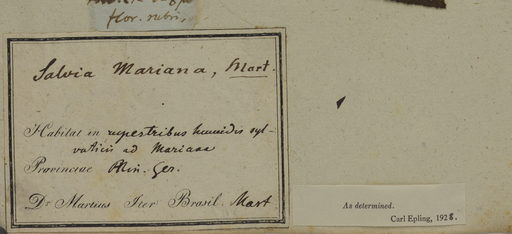 flor. rubris,
Salvia Mariana, Mart.
Habitat in rupestribus humidis syl-
vaticis ad Mariana
Provinciae Min. Ger.
Dr Martius Iter Brasil. Mart
As determined.
Carl Epling, 1928.